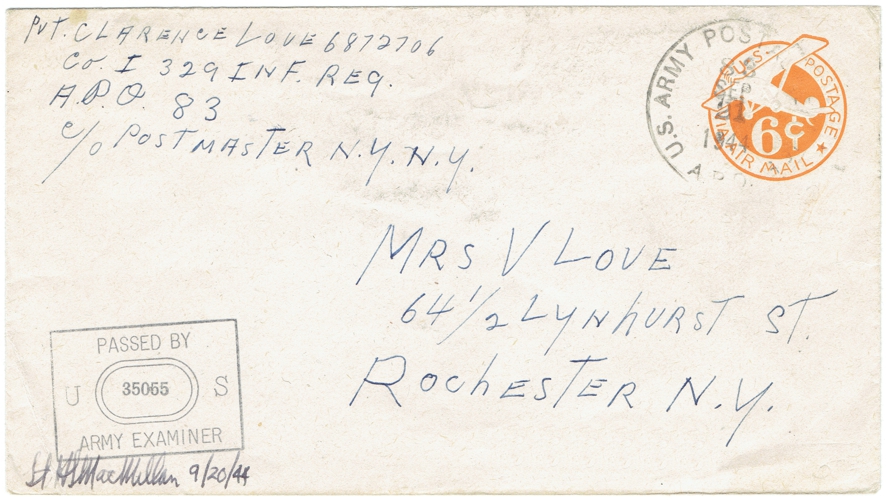 Pvt. CLARENCE LOVE 6872706
Co. I 329 INF. REG.
A.P.O. 83
c/o POSTMASTER N.Y. N.Y.
U.S. ARMY POST
SEP
21
1944
A.P.O.
U.S. POSTAGE
6¢
AIR MAIL
MRS V LOVE
64 1/2 LYNhURST ST.
RochESTER N.Y.
PASSED BY
U 35065 S
ARMY EXAMINER
MacMillan 9/20/44